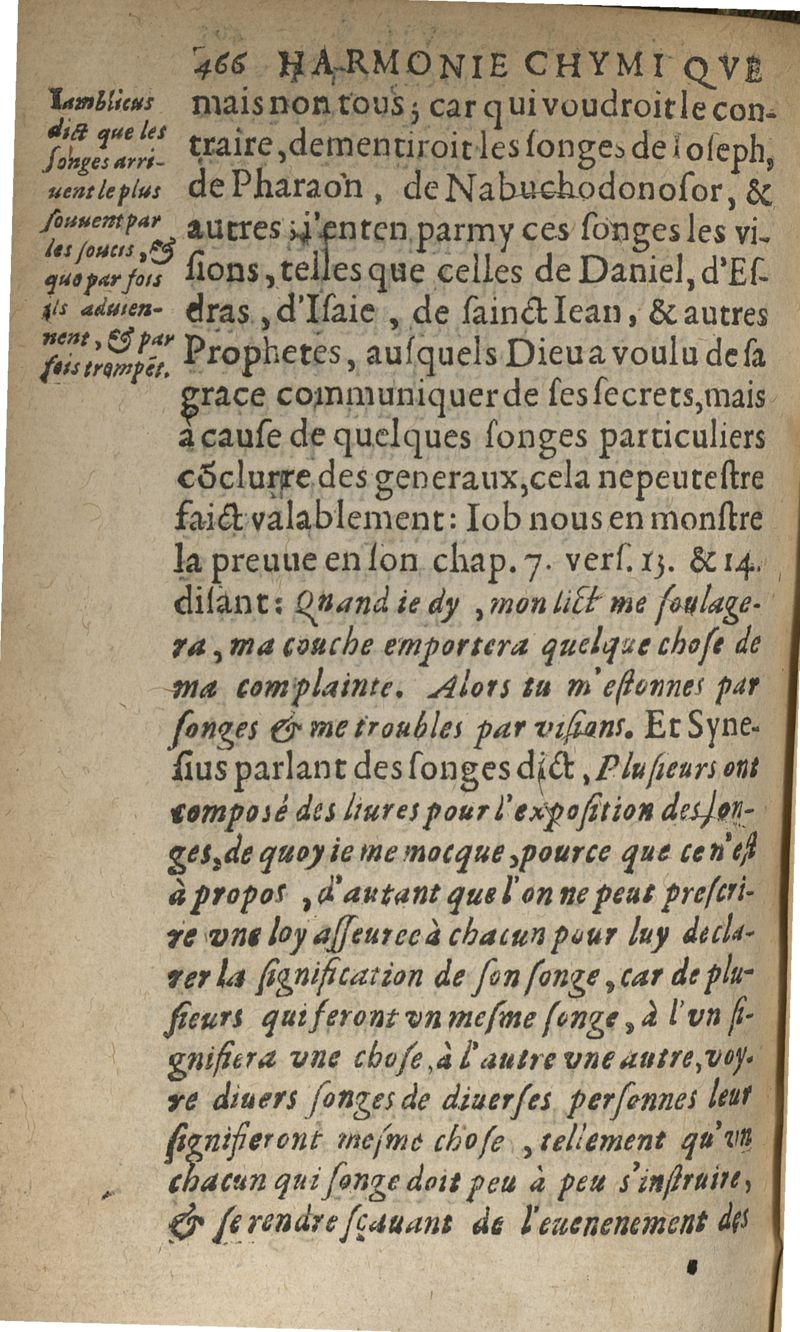 466 HARMONIE CHYMIQVE
Iamblicus
dict que les
songes arri-
uent le plus
souuent par
les soucis, &
que par fois
ils aduien-
nent, & par
fois trompẽt.
mais non tous; car qui voudroit le con-
traire, dementiroit les songes de Ioseph,
de Pharaon, de Nabuchodonosor, &
autres; i'enten parmy ces songes les vi-
sions, telles que celles de Daniel, d'Es-
dras, d'Isaie, de sainct Iean, & autres
Prophetes, ausquels Dieu a voulu de sa
grace communiquer de ses secrets, mais
à cause de quelques songes particuliers
cõclurre des generaux, cela ne peut estre
faict valablement: Iob nous en monstre
la preuue en son chap. 7. vers. 13. & 14.
disant: Quand ie dy, mon lict me soulage-
ra, ma couche emportera quelque chose de
ma complainte. Alors tu m'estonnes par
songes & me troubles par visions. Et Syne-
sius parlant des songes dict, Plusieurs ont
composé des liures pour l'exposition des son-
ges, de quoy ie me mocque, pource que ce n'est
à propos, d'autant que l'on ne peut prescri-
re vne loy asseuree à chacun pour luy decla-
rer la signification de son songe, car de plu-
sieurs qui feront vn mesme songe, à l'vn si-
gnifiera vne chose, à l'autre vne autre, voy-
re diuers songes de diuerses personnes leur
signifieront mesme chose, tellement qu'vn
chacun qui songe doit peu à peu s'instruire,
& se rendre sçauant de l'euenenement des